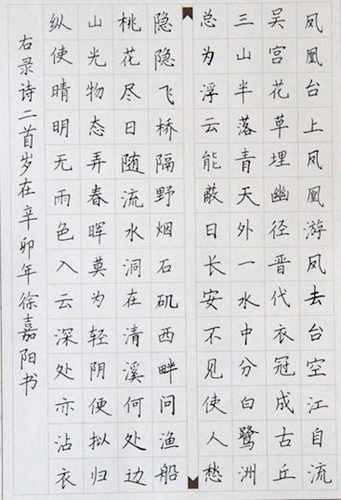 凤凰台上凤凰游凤去台空江自流
吴宫花草埋幽径晋代衣冠成古丘
三山半落青天外一水中分白鹭洲
总为浮云能蔽日长安不见使人愁
隐隐飞桥隔野烟石矶西畔问渔船
桃花尽日随流水洞在清溪何处边
山光物态弄春晖莫为轻阴便拟归
纵使晴明无雨色入云深处亦沾衣
右录诗二首岁在辛卯年徐嘉阳书